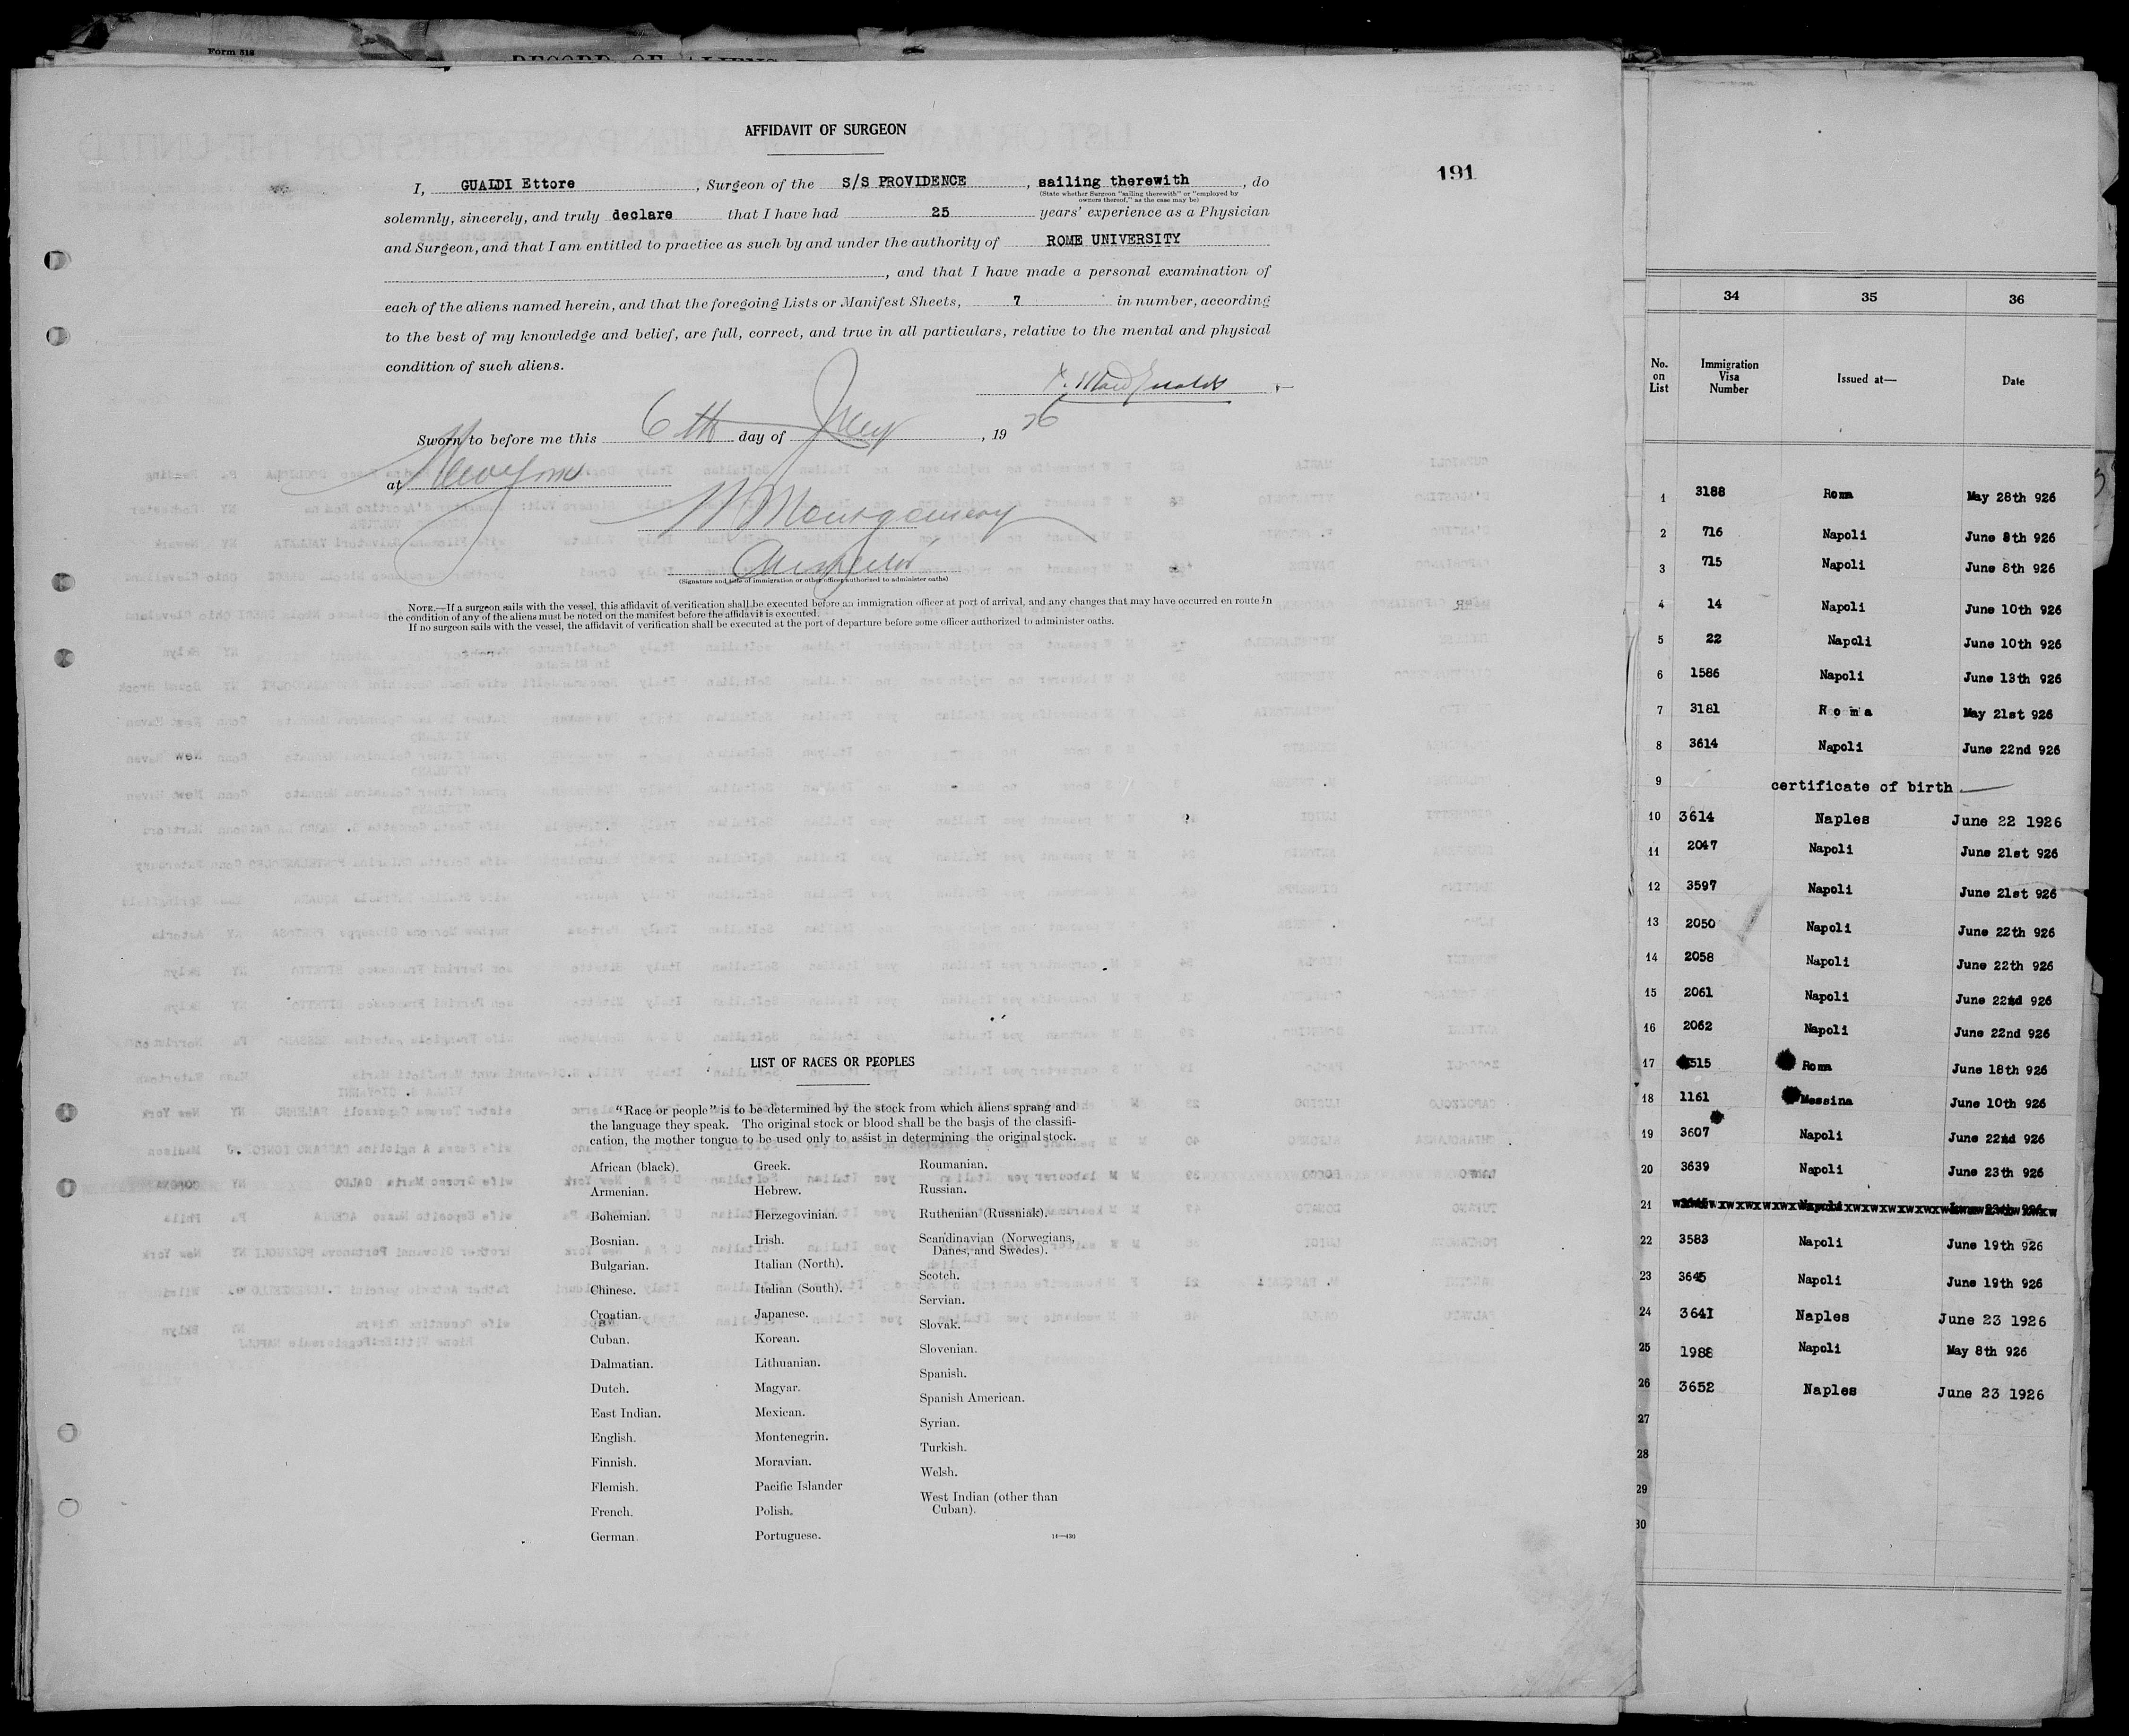 Form 518
RECORD OF ALIENS
AFFIDAVIT OF SURGEON
191
I, GUALDI Ettore, Surgeon of the S/S PROVIDENCE, sailing therewith, do
(State whether Surgeon "sailing therewith" or "employed by
owners thereof," as the case may be)
solemnly, sincerely, and truly declare that I have had 25 years' experience as a Physician
and Surgeon, and that I am entitled to practice as such by and under the authority of ROME UNIVERSITY
, and that I have made a personal examination of
each of the aliens named herein, and that the foregoing Lists or Manifest Sheets, 7 in number, according
to the best of my knowledge and belief, are full, correct, and true in all particulars, relative to the mental and physical
condition of such aliens.
Sworn to before me this 6th day of July, 1926
at New York
Montgomery
Inspector
(Signature and title of immigration or other officer authorized to administer oaths)
NOTE.—If a surgeon sails with the vessel, this affidavit of verification shall be executed before an immigration officer at port of arrival, and any changes that may have occurred en route in
the condition of any of the aliens must be noted on the manifest before the affidavit is executed.
If no surgeon sails with the vessel, the affidavit of verification shall be executed at the port of departure before some officer authorized to administer oaths.
LIST OF RACES OR PEOPLES
"Race or people" is to be determined by the stock from which aliens sprang and
the language they speak. The original stock or blood shall be the basis of the classifi-
cation, the mother tongue to be used only to assist in determining the original stock.
African (black).
Armenian.
Bohemian.
Bosnian.
Bulgarian.
Chinese.
Croatian.
Cuban.
Dalmatian.
Dutch.
East Indian.
English.
Finnish.
Flemish.
French.
German.
Greek.
Hebrew.
Herzegovinian.
Irish.
Italian (North).
Italian (South).
Japanese.
Korean.
Lithuanian.
Magyar.
Mexican.
Montenegrin.
Moravian.
Pacific Islander
Polish.
Portuguese.
Roumanian.
Russian.
Ruthenian (Russniak).
Scandinavian (Norwegians,
Danes, and Swedes).
Scotch.
Servian.
Slovak.
Slovenian.
Spanish.
Spanish American.
Syrian.
Turkish.
Welsh.
West Indian (other than
Cuban).
14—430
34 35 36
No. on List Immigration Visa Number Issued at— Date
1 3188 Roma May 28th 926
2 716 Napoli June 8th 926
3 715 Napoli June 8th 926
4 14 Napoli June 10th 926
5 22 Napoli June 10th 926
6 1586 Napoli June 13th 926
7 3181 Roma May 21st 926
8 3614 Napoli June 22nd 926
9 certificate of birth
10 3614 Naples June 22 1926
11 2047 Napoli June 21st 926
12 3597 Napoli June 21st 926
13 2050 Napoli June 22th 926
14 2058 Napoli June 22th 926
15 2061 Napoli June 22nd 926
16 2062 Napoli June 22nd 926
17 515 Roma June 18th 926
18 1161 Messina June 10th 926
19 3607 Napoli June 22nd 926
20 3639 Napoli June 23th 926
21 Napoli June 23th 926
22 3583 Napoli June 19th 926
23 3645 Napoli June 19th 926
24 3641 Naples June 23 1926
25 1988 Napoli May 8th 926
26 3652 Naples June 23 1926
27
28
29
30